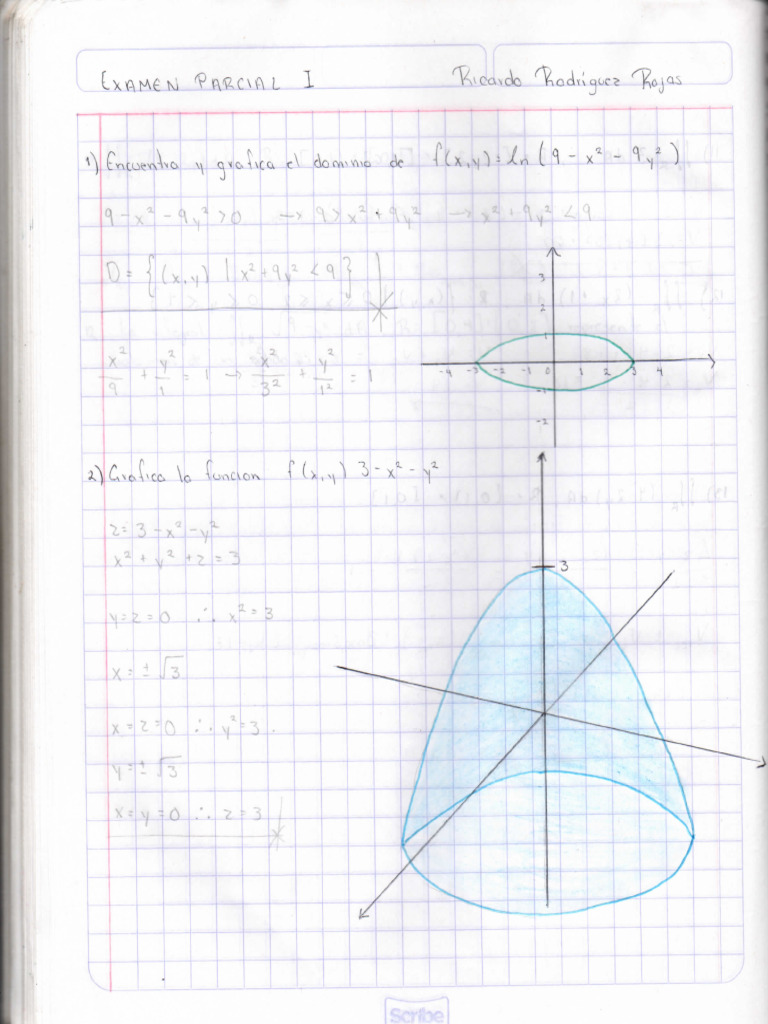 EXAMEN PARCIAL I Ricardo Rodríguez Rojas
1) Encuentra y grafica el dominio de f(x,y)= ln (9 - x² - 9y²)
9 - x² - 9y² > 0 → 9 > x² + 9y² → x² + 9y² < 9
D = {(x,y) | x² + 9y² < 9}
x²/9 + y²/1 = 1 → x²/3² + y²/1² = 1
3
2
1
-4 -3 -2 -1 0 1 2 3 4
-1
-2
2) Grafica la funcion f(x,y) 3 - x² - y²
z = 3 - x² - y²
x² + y² + z = 3
3
y = z = 0 ∴ x² = 3
x = ± √3
x = z = 0 ∴ y² = 3.
y = ± √3
x = y = 0 ∴ z = 3
Scribe